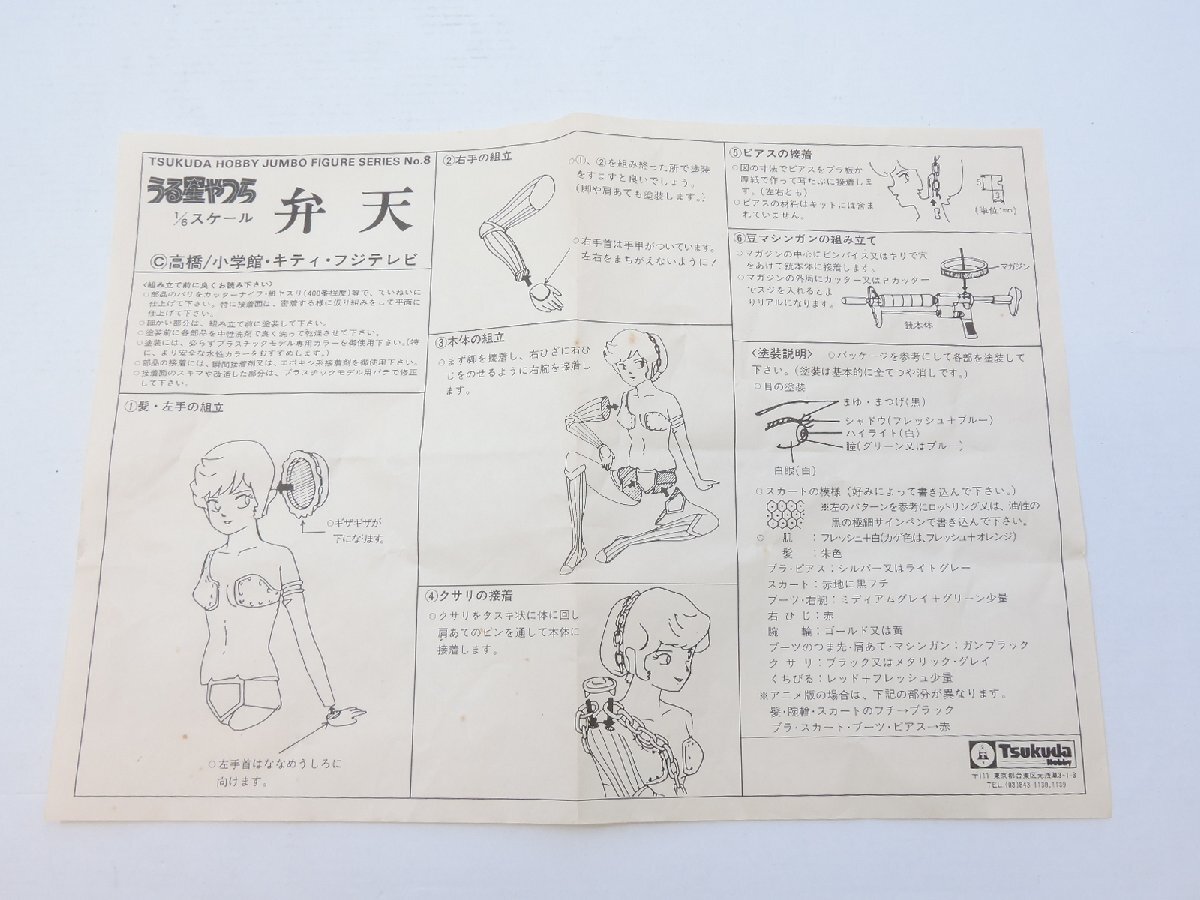 TSUKUDA HOBBY JUMBO FIGURE SERIES No.8
うる星やつら
弁天
スケール
©高橋/小学館・キティ・フジテレビ
<組み立て前に良くお読み下さい>
○部品のバリをカッターナイフ・紙ヤスリ(400番程度)等で、ていねいに
仕上げて下さい。特に接着面は、密着する様に仮り組みをして平滑に
仕上げて下さい。
○細かい部分は、組み立て前に塗装して下さい。
○塗装前に各部品を中性洗剤で良く洗って乾燥させて下さい。
○塗装には、必らずプラスチックモデル専用カラーを御使用下さい。(特
に、より安全な水性カラーをおすすめします。)
○部品の接着には、瞬間接着剤又は、エポキシ系接着剤を御使用下さい。
○接着面のスキマや改造した部分は、プラスチックモデル用パテで修正
して下さい。
①髪・左手の組立
○ギザギザが
下になります。
○左手首はななめうしろに
向けます。
②右手の組立
○①、②を組み終った所で塗装
をすますと良いでしょう。
(脚や肩あても塗装します。)
○右手首は手甲がついています。
左右をまちがえないように!
③本体の組立
○まず脚を接着し、右ひざに右ひ
じをのせるように右腕を接着し
ます。
④クサリの接着
○クサリをタスキ状に体に回し
肩あてのピンを通して本体に
接着します。
⑤ピアスの接着
○図の寸法でピアスをプラ板か
厚紙で作って耳たぶに接着しま
す。(左右とも)
○ピアスの材料はキットには含ま
れていません。
(単位:mm)
⑥豆マシンガンの組み立て
○マガジンの中心にピンバイス又はキリで穴
をあけて銃本体に接着します。
○マガジンの外周にカッター又はPカッター
でスジを入れるとよ
りリアルになります。
マガジン
銃本体
<塗装説明> ○パッケージを参考にして各部を塗装して
下さい。(塗装は基本的に全てつや消しです。)
○目の塗装
まゆ・まつげ(黒)
シャドウ(フレッシュ+ブルー)
ハイライト(白)
瞳(グリーン又はブルー)
白眼(白)
○スカートの模様(好みによって書き込んで下さい。)
※左のパターンを参考にロットリング又は、油性の
黒の極細サインペンで書き込んで下さい。
○ 肌 :フレッシュ+白(カゲ色は、フレッシュ+オレンジ)
髪 :朱色
ブラ・ピアス:シルバー又はライトグレー
スカート:赤地に黒フチ
ブーツ・右腕:ミディアムグレイ+グリーン少量
右ひじ:赤
腕 輪:ゴールド又は黄
ブーツのつま先・肩あて・マシンガン:ガンブラック
クサリ:ブラック又はメタリック・グレイ
くちびる:レッド+フレッシュ少量
※アニメ版の場合は、下記の部分が異なります。
髪・腕輪・スカートのフチ→ブラック
ブラ・スカート・ブーツ・ピアス→赤
Tsukuda
Hobby
〒111 東京都台東区